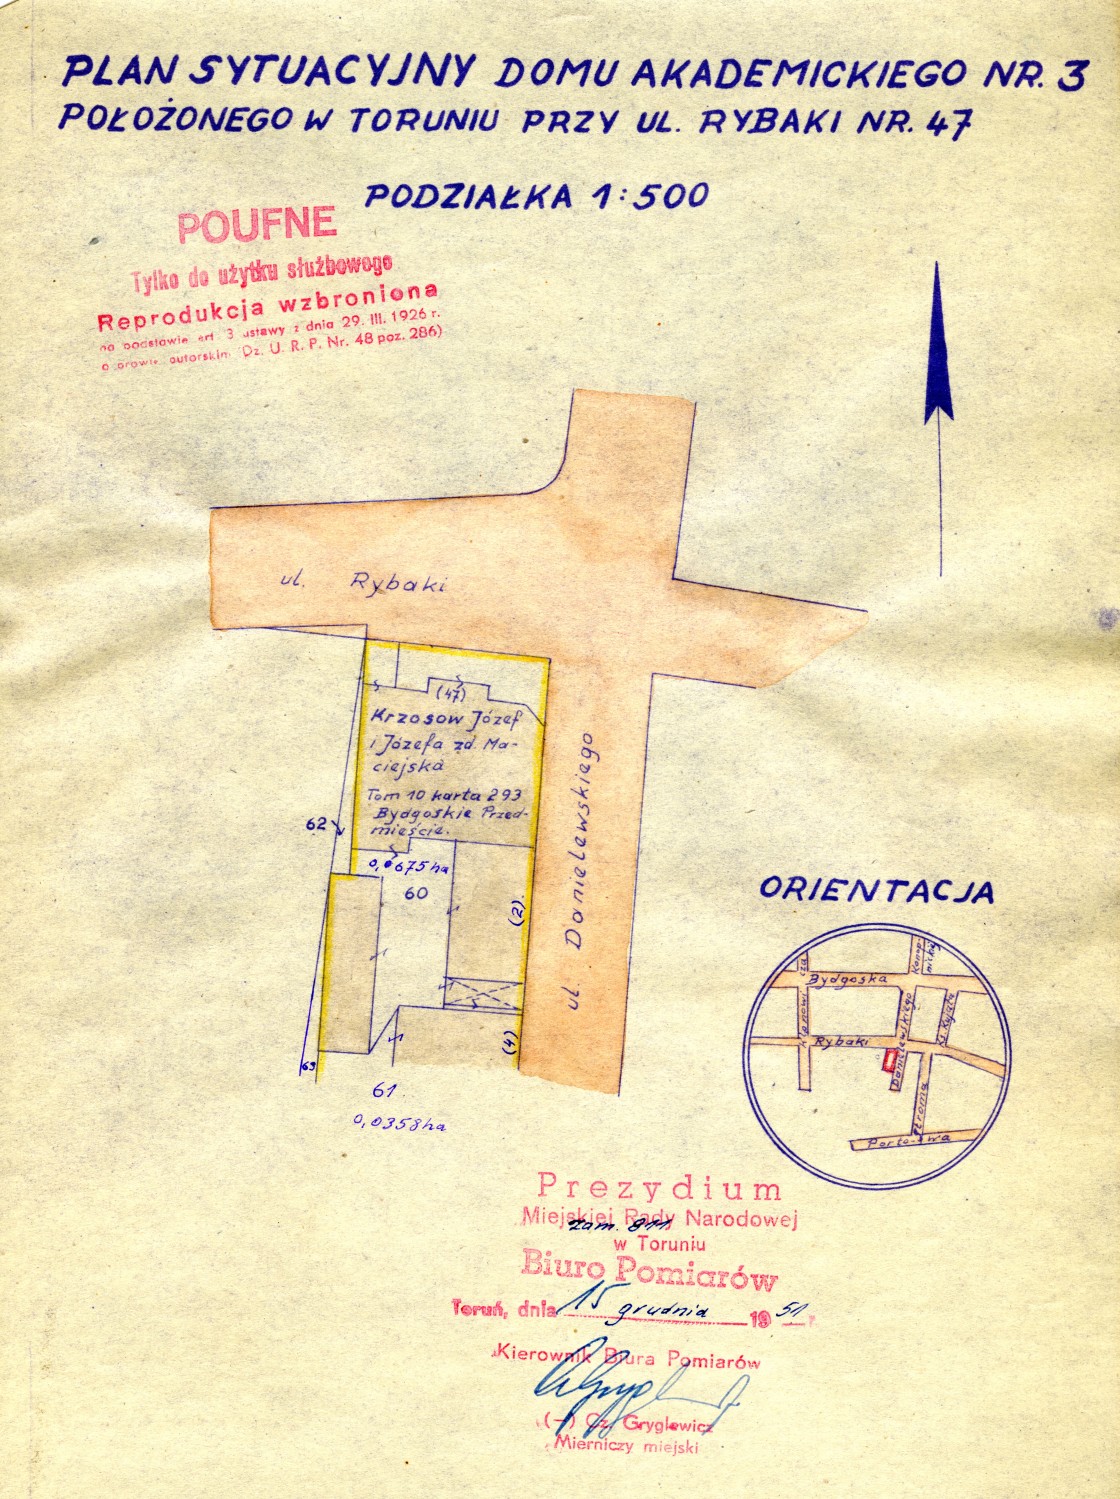 PLAN SYTUACYJNY DOMU AKADEMICKIEGO NR. 3
POŁOŻONEGO W TORUNIU PRZY UL. RYBAKI NR. 47
PODZIAŁKA 1:500
POUFNE
Tylko do użytku służbowego
Reprodukcja wzbroniona
na podstawie art. 3 ustawy z dnia 29. III. 1926 r.
o prawie autorskim (Dz. U. R. P. Nr. 48 poz. 286)
ul. Rybaki
(47)
Krzosow Józef
i Józefa zd. Ma-
ciejska
Tom 10 karta 293
Bydgoskie Przed-
mieście.
62
0,0675 ha
60
(2)
ul. Danielewskiego
(4)
63
61
0,0358 ha
ORIENTACJA
Konop-
nickiej
Bydgoska
Klonowicza
Danielewskiego
Ks. Kujota
Rybaki
Danielewskiego
Stroma
Portowa
Prezydium
Miejskiej Rady Narodowej
zam. 811
w Toruniu
Biuro Pomiarów
Toruń, dnia 15 grudnia 1951 r.
Kierownik Biura Pomiarów
(—) Cz. Gryglewicz
Mierniczy miejski